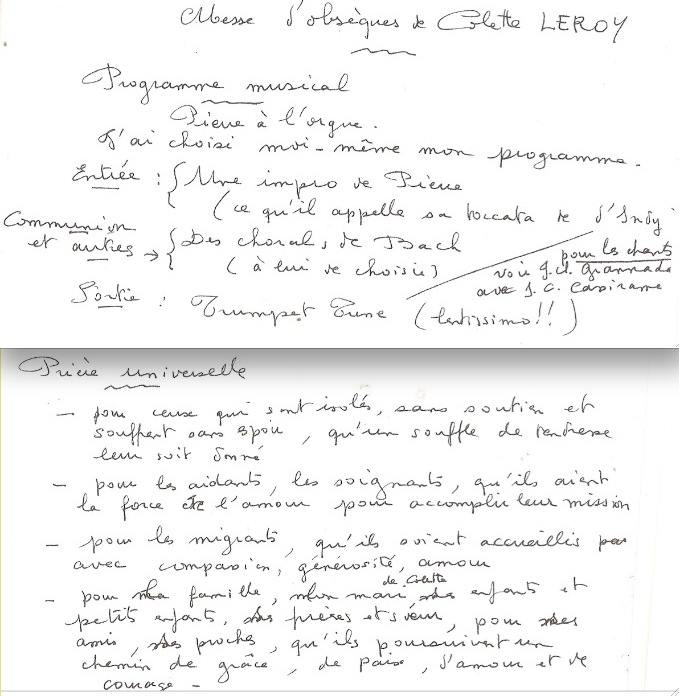 Messe d'obsèques de Colette LEROY
Programme musical
Pierre à l'orgue.
J'ai choisi moi-même mon programme.
Entrée : { Une impro de Pierre
(ce qu'il appelle sa toccata de d'Indy
Communion
et autres → { Des chorals de Bach
(à lui de choisir)
pour les chants
voir J.Cl. Grannado
avec J. C. Capirame
Sortie : Trumpet Tune (lentissimo!!)
Prière universelle
- pour ceux qui sont isolés, sans soutien et
souffrent sans espoir, qu'un souffle de tendresse
leur soit donné
- pour les aidants, les soignants, qu'ils aient
la force de l'amour pour accomplir leur mission
- pour les migrants, qu'ils soient accueillis par
avec compassion, générosité, amour
- pour sa famille, son mari ses enfants et
de Colette
petits enfants, ses frères et sœur, pour ses
amis, ses proches, qu'ils poursuivent un
chemin de grâce, de paix, d'amour et de
courage -